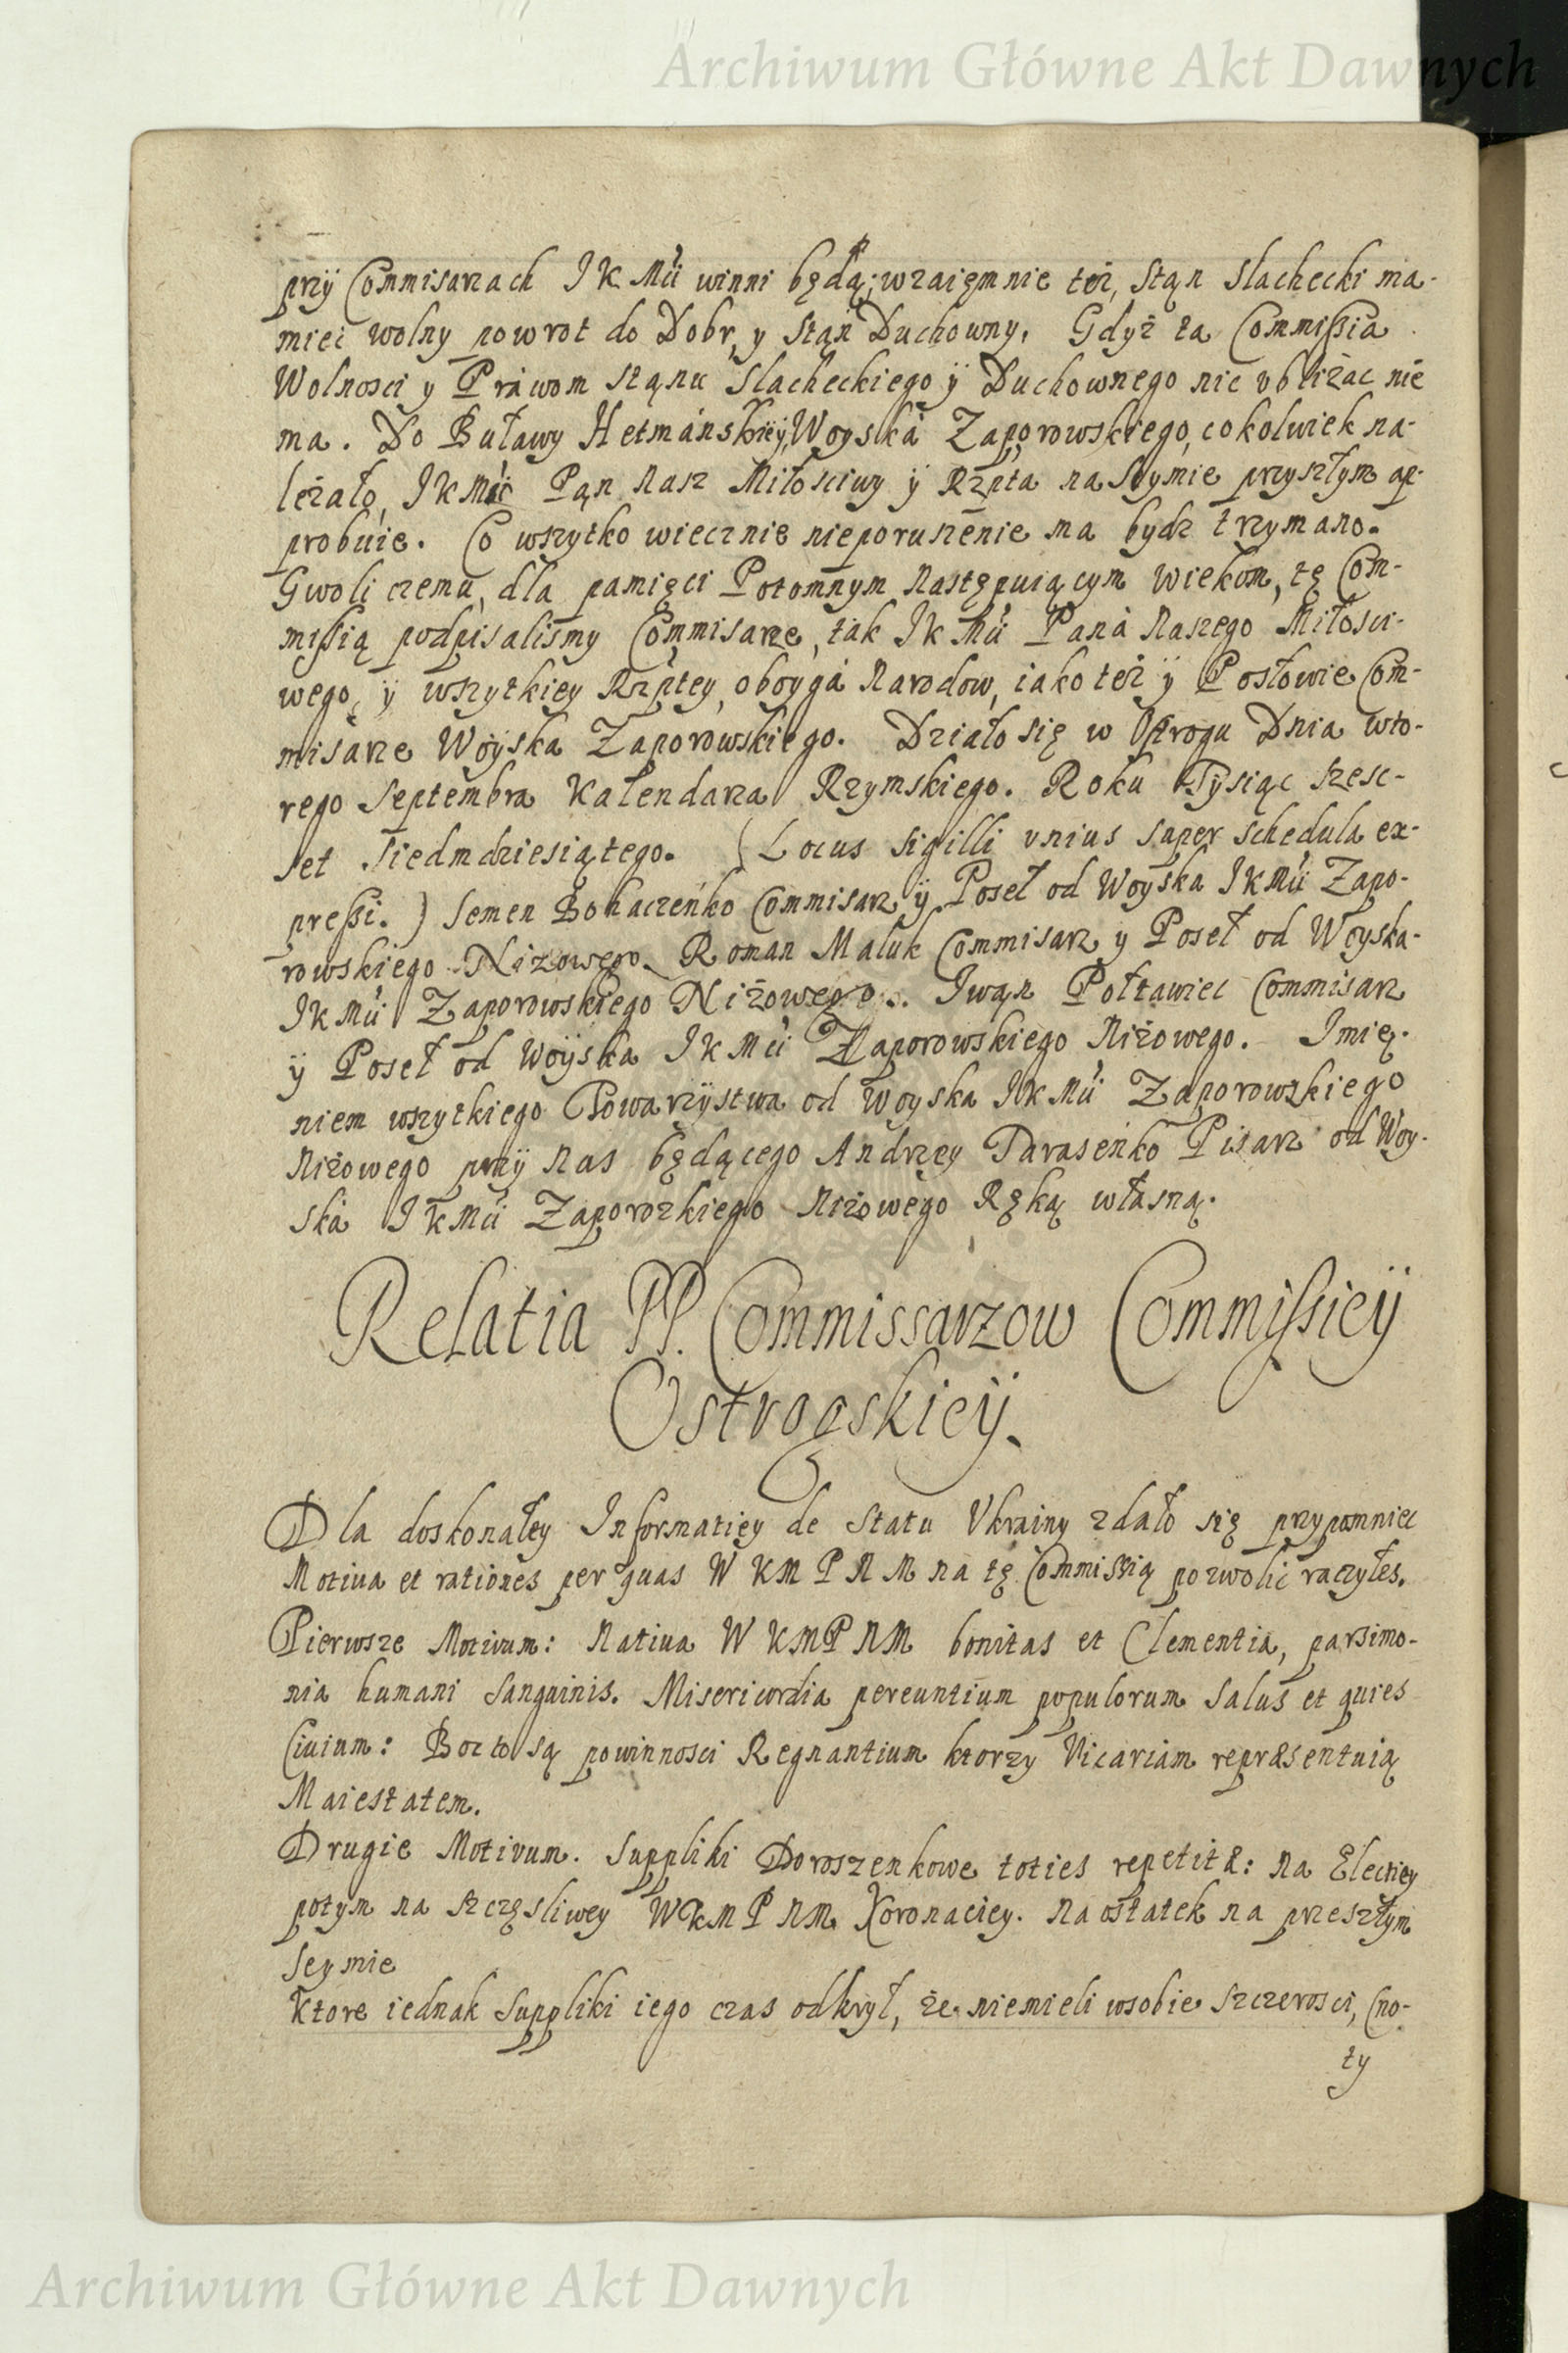 Archiwum Główne Akt Dawnych
przÿ Commisarzach JKMći winni będą; wzaięmnie też, Stąn Slachecki ma-
mieć wolny powrot do Dobr, y Stąn Duchowny. Gdyż ta Commißia
Wolnosci y Práwom Stąnu Slacheckiego ÿ Duchownego nic vbliżac nie
ma. Do Buławy Hetmánskieÿ, Woyská Zaporowskiego, cokolwiek na-
leżało, JKMść Pąn Nasz Miłosciwy ÿ Rzpta na Seymie przyszłym ap-
probuie. Co wszytko wiecznie nieporuszenie ma bydz trzymano.
Gwoli czemu, dla pamięci Potomnym Następuiącym Wiekom, tę Com-
mißią podpisalismy Commisarze, tak JKMći Paná Naszego Miłosci-
wego, ÿ wszytkiey Rzptey, oboygá Narodow, iako też ÿ Posłowie Com-
misarze Woÿska Zaporowskiego. Działo się w Ostrogu Dnia wto-
rego Septembra Kalendarza Rzymskiego. Roku Tysiąc szesc-
set siedmdziesiątego. (Locus sigilli vnius super schedula ex-
preßi.) Semen Bohaczeńko Commisarz ÿ Poseł od Woyska JKMći Zapo-
rowskiego Nizowego. Roman Maluk Commisarz y Poseł od Woyska
JKMći Zaporowskiego Niżowego. Jwąn Połtawiec Commisarz
ÿ Poseł od Woÿska JKMći Zaporowskiego Niżowego. Jmię-
niem wszytkiego Towarzÿstwa od Woyska JKMći Zaporowskiego
Niżowego przÿ Nas będącego Andrzey Taraseńko Pisarz od Woy-
ská JKMći Zaporozkiego Niżowego Ręką własną.
Relatia PP. Commissarzow Commißieÿ
Ostrogskieÿ.
Dla doskonałey Informatiey de Statu Vkrainy zdało się przypomniec
Motiua et rationes per quas WKMPNM na tę Commissią pozwolic raczyłes.
Pierwsze Motivum: Natiua WKMPNM bonitas et Clementia, parsimo-
nia humani Sanguinis. Misericordia pereuntium populorum Salus et quies
Ciuium: Boć to są powinnosci Regnantium ktorzy Vicariam repræsentuią
Maiestatem.
Drugie Motivum. Suppliki Doroszenkowe toties repetitæ: Na Electiey
potym na szczęsliwey WKMPNM Koronaciey. Na ostatek na przeszłym
Seymie
Ktore iednak Suppliki iego czas odkrył, że niemieli wsobie szczerosci, Cno-
ty
Archiwum Główne Akt Dawnych